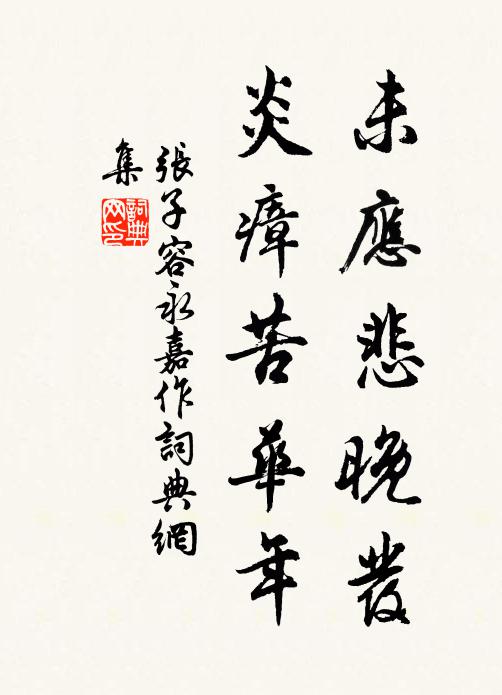 未應悲晚發
炎瘴苦華年
張子容永嘉作詞典網
集
詞典
网印